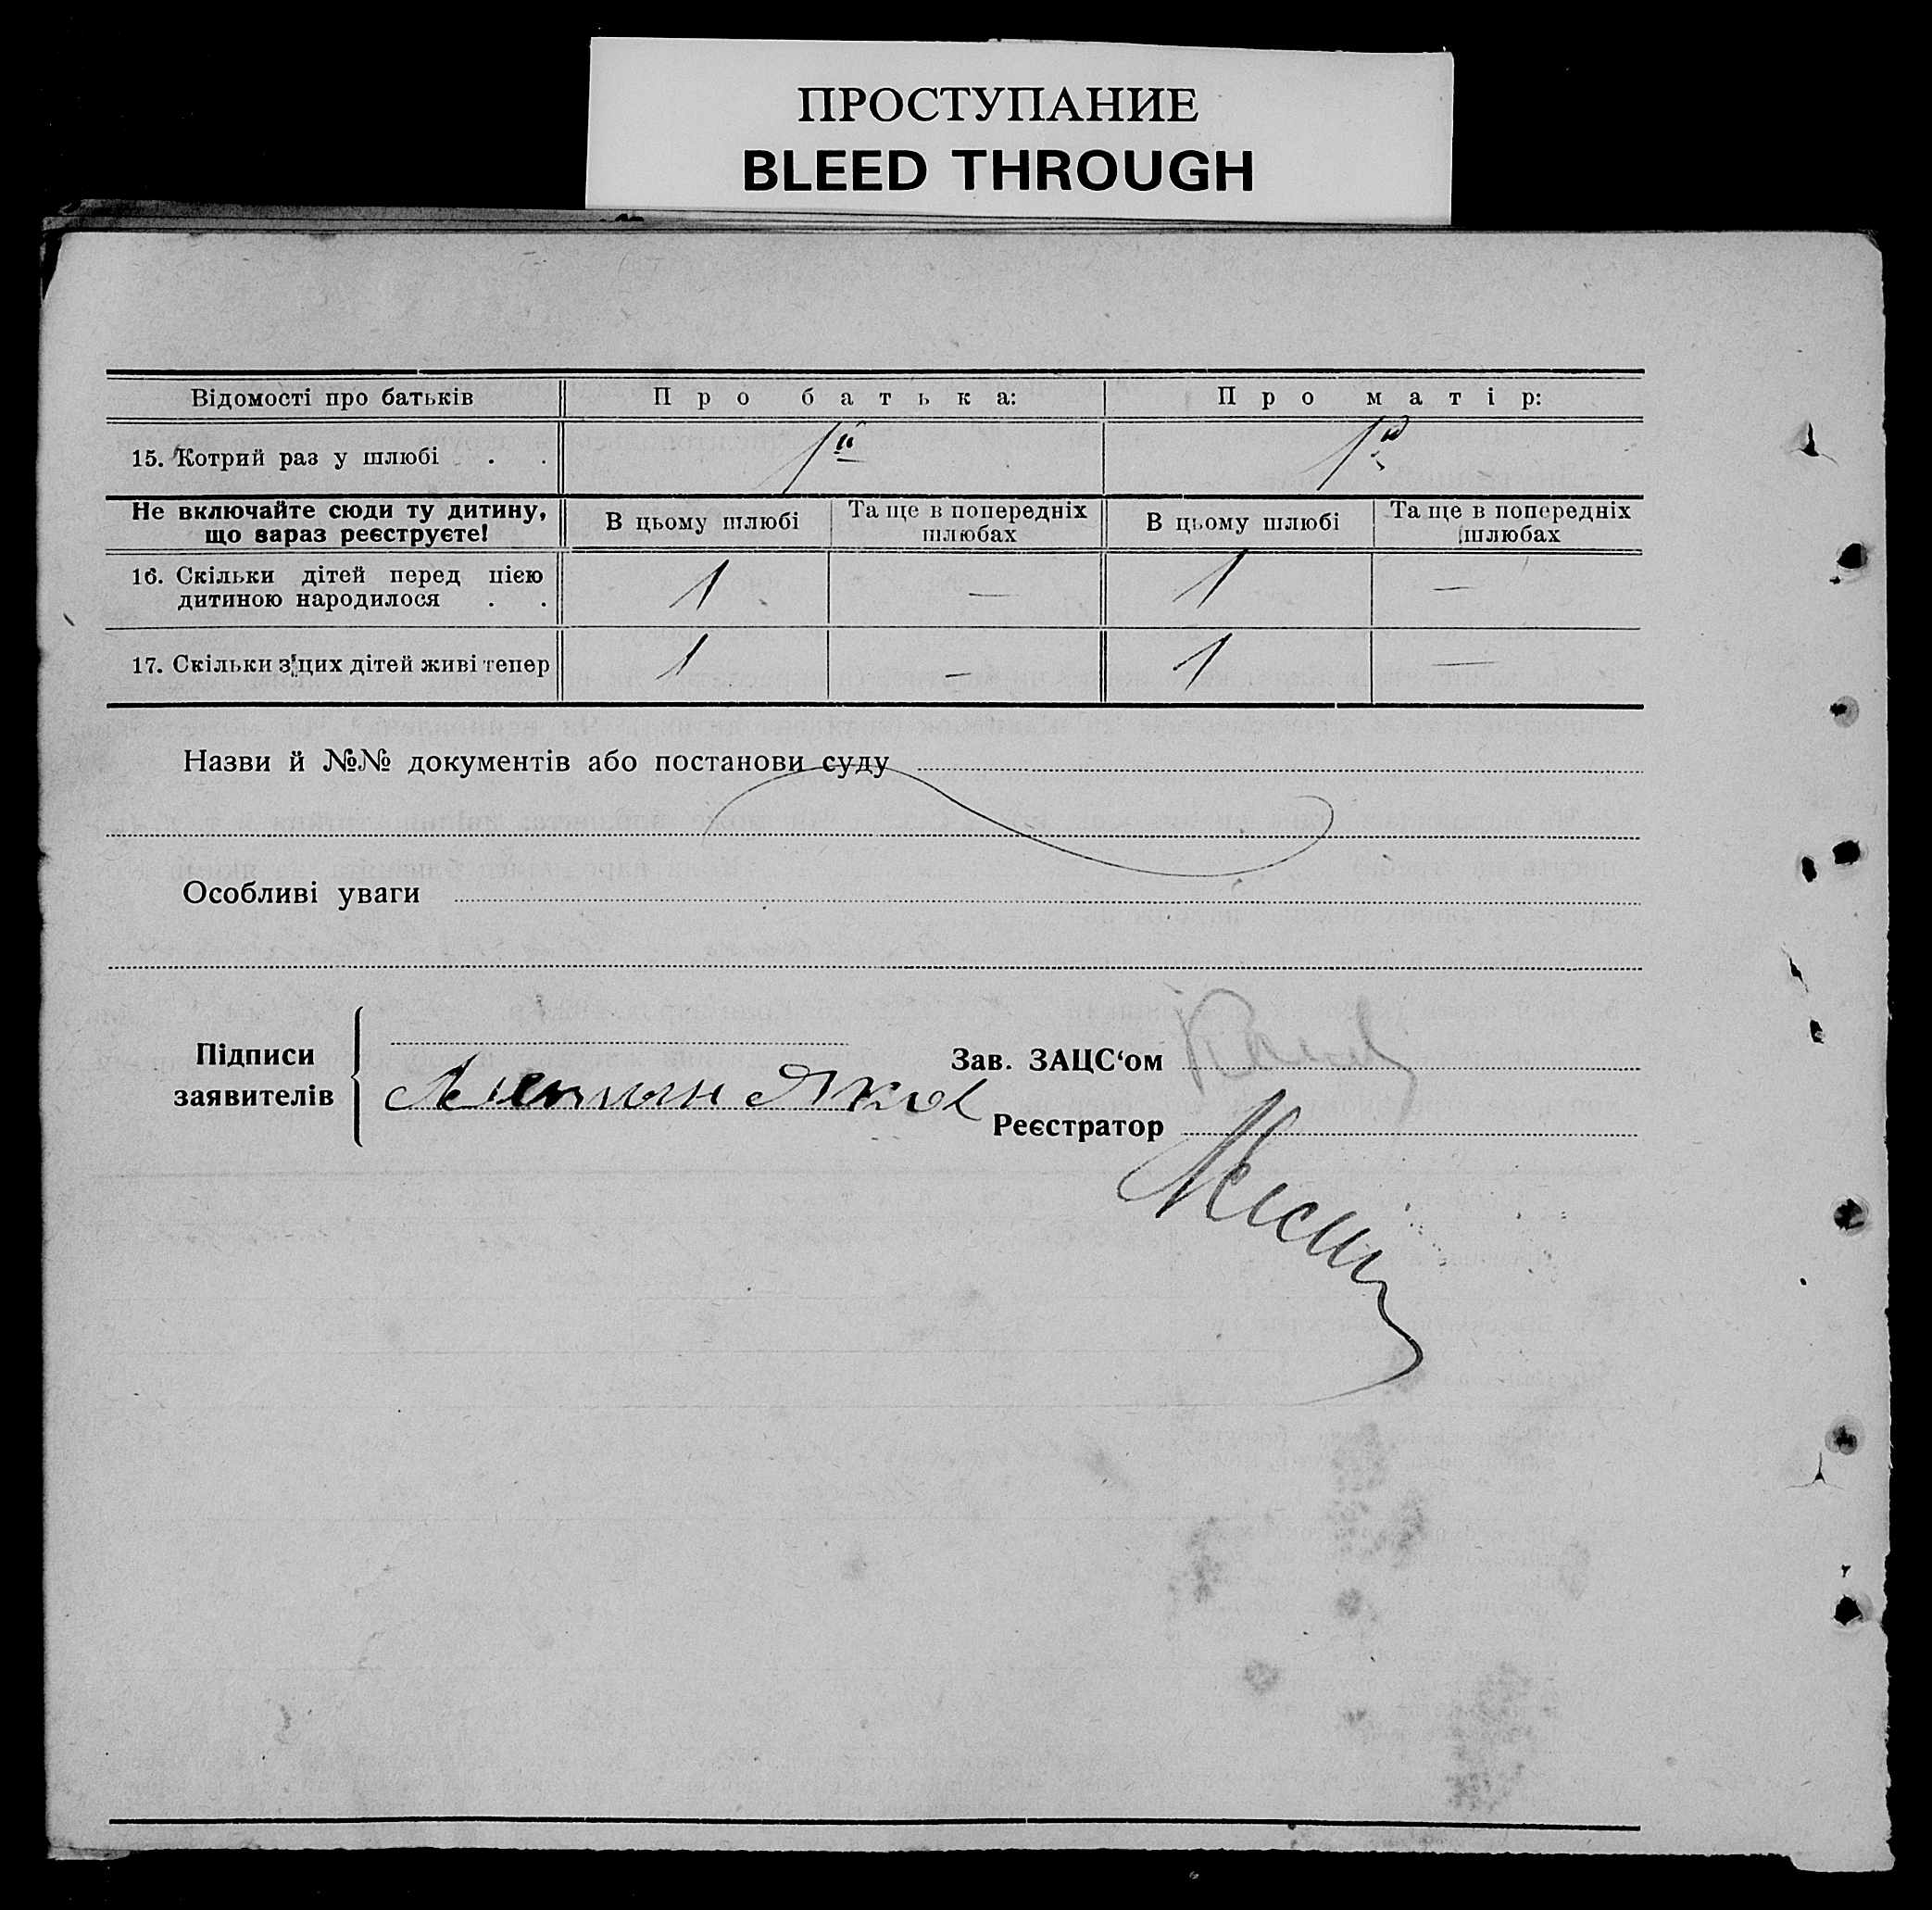 ПРОСТУПАНИЕ
BLEED THROUGH
Відомості про батьків Про батька: Про матір:
15. Котрий раз у шлюбі . . 1й 1й
Не включайте сюди ту дитину, що зараз реєструєте! В цьому шлюбі Та ще в попередніх шлюбах В цьому шлюбі Та ще в попередніх шлюбах
16. Скільки дітей перед цією
дитиною народилося . . 1 — 1 —
17. Скільки з цих дітей живі тепер 1 — 1 —
Назви й №№ документів або постанови суду
Особливі уваги
Підписи
заявителів
Яков
Зав. ЗАЦС‘ом
Реєстратор